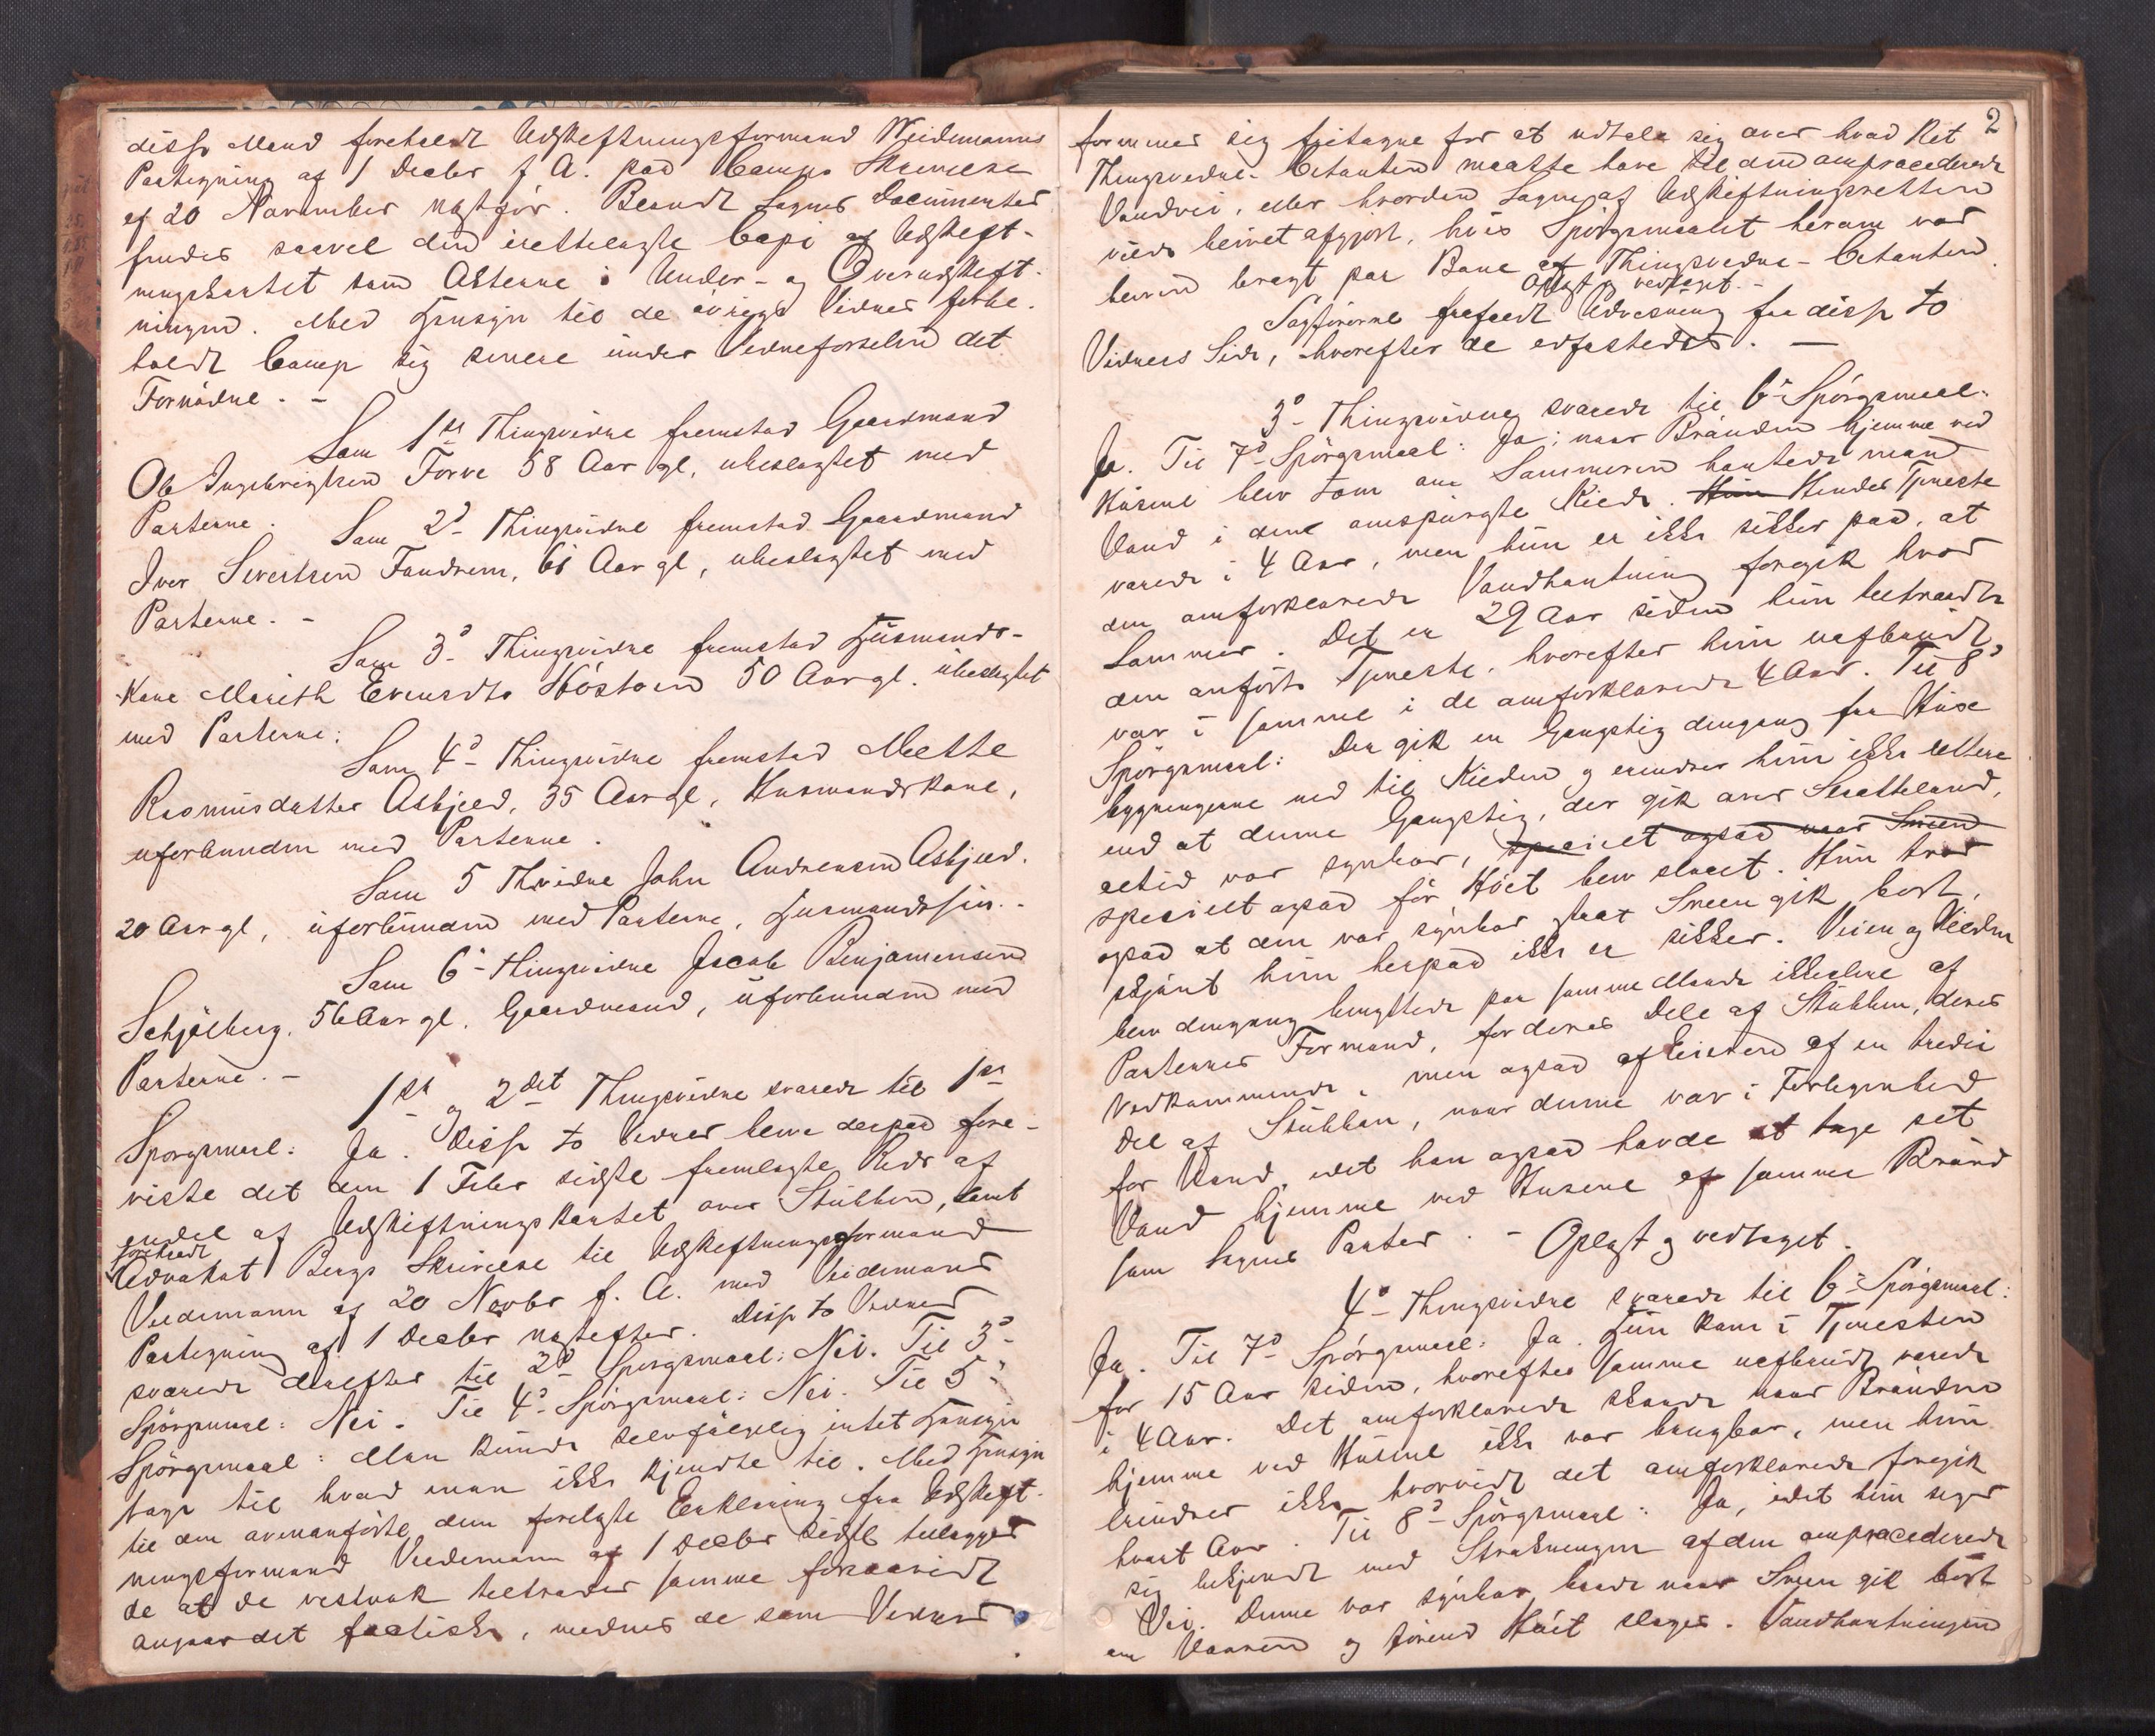 disse Mænd foreholdt Udskiftningsformand Weidemanns
Paategning af 1 Decbr f. A. paa Camps Skrivelse
af 20 November næstfør. Blandt Sagens Documenter
findes saavel den irettelagte Copi af Udskift-
ningskartet som Akterne i Under- og Overudskift-
ningen. Med Hensyn til de øvrige Vidner forbe-
holdt Camp sig senere under Vidneførselen det
Fornødne. -
Som 1ste Thingsvidne fremstod Gaardmand
Ole Ingebrigtsen Forve 58 Aar gl, ubeslægtet med
Parterne.
Som 2det Thingsvidne fremstod Gaardmand
Iver Sivertsen Fandrem, 61 Aar gl, ubeslægtet med
Parterne. -
Som 3de Thingsvidne fremstod Husmands-
kone Marith Evensdtr Høstoen 50 Aar gl. ubeslægtet
med Parterne.
Som 4de Thingsvidne fremstod Mette
Rasmusdatter Asbjeld, 35 Aar gl, Husmandskone,
uforbunden med Parterne.
Som 5 Thvidne John Andersen Asbjeld.
20 Aar gl, uforbunden med Parterne, Husmandssøn. -
Som 6te Thingsvidne Jacob Benjaminsen
Schjølberg, 56 Aar gl. Gaardmand, uforbunden med
Parterne. -
1ste og 2det Thingsvidne svarede til 1ste
Spørgsmaal: Ja. Disse to Vidner bleve derpaa fore-
viste det den 1 Febr sidste fremlagte Rids af
endel af Udskiftningskartet over Stubben, samt
foreholdt
Advokat Bergs Skrivelse til Udskiftningsformand
Veidemann af 20 Novbr f. A. med Veidemans
Paategning af 1 Decbr næstefter. Disse to Vidner
svarede derefter til 2det Spørgsmaal: Nei. Til 3de
Spørgsmaal: Nei. Til 4de Spørgsmaal: Nei. Til 5te
Spørgsmaal: Man kunde selvfølgelig intet Hensyn
tage til hvad man ikke kjendte til. Med Hensyn
til den ovenanførte dem forelagte Erklæring fra Udskift-
ningsformand Veidemann af 1 Decbr sidstl tillægges
de at de vestnok tiltræder samme forsaavidt
angaar det factiske, medens de som Vidner
2
formener sig fritagne for at udtale sig over hvad Ret
Thingsvidne-Citanten maatte have til den omprocederede
Vandvei, eller hvordan Sagen af Udskiftningsretten
vilde bleivet afgjort, hvis Spørgsmaalet herom var
bleven bragt paa Bane af Thingsvidne-Citanten.
Oplæst og vedtaget. -
Sagførerne frafaldt Edvæsning fra disse to
Vidners Side, hvorefter de edfæstedes. -
3de Thingsvidne svarede til 6te Spørgsmaal:
Ja. Til 7de Spørgsmaal: Ja; naar Brønden hjemme ved
Husene blev tom om Sommeren hentede man
Vand i den omspurgte Kiede. Hun Hendes Tjeneste
varede i 4 Aar, men hun er ikke sikker paa, at
den omforklarede Vandhentning foregik hver
Sommer. Det er 29 Aar siden hun tiltraadte
den anførte Tjeneste, hvorefter hun uafbrudt
var i samme i de omforklarede 4 Aar. Til 8de
Spørgsmaal: Der gik en Gangstig dengang fra Huse
bygningerne ned til Kieden og erindrer hun ikke rettere
end at denne Gangstig, der gik over Slaatteland,
altid var synbar, specielt ogsaa naar Sneen
specielt ogsaa før Høet blev slaaet. Hun tror
ogsaa at den var synbar strax Sneen gik bort,
skjønt hun herpaa ikke er sikker. Veien og Kieden
blev dengang benyttede paa samme Maade ikkealene af
Parternes Formænd, for deres Dele af Stubben, deres
Vedkommende, men ogsaa af Eieren af en tredie
Del af Stubben, naar denne var i Forlegenhed
for Vand, idet han ogsaa havde at tage sit
Vand hjemme ved Husene af samme Brønd
som Sagens Parter. - Oplæst og vedtaget.
4de Thingsvidne svarede til 6te Spørgsmaal:
Ja. Til 7de Spørgsmaal: Ja. Hun kom i Tjenesten
for 15 Aar siden, hvorefter samme uafbrudt varede
i 4 Aar. Det omforklarede skeede naar Brønden
hjemme ved Husene ikke var brugbar, men hun
erindrer ikke hvorvidt det omforklarede foregik
hvert Aar. Til 8de Spørgsmaal: Ja, idet hun siger
sig bekjendt med Strækningen af den omprocederede
Vei. Denne var synbar baade naar Sneen gik bort
om Vaaren og førend Høet sloges. Vandhentningen